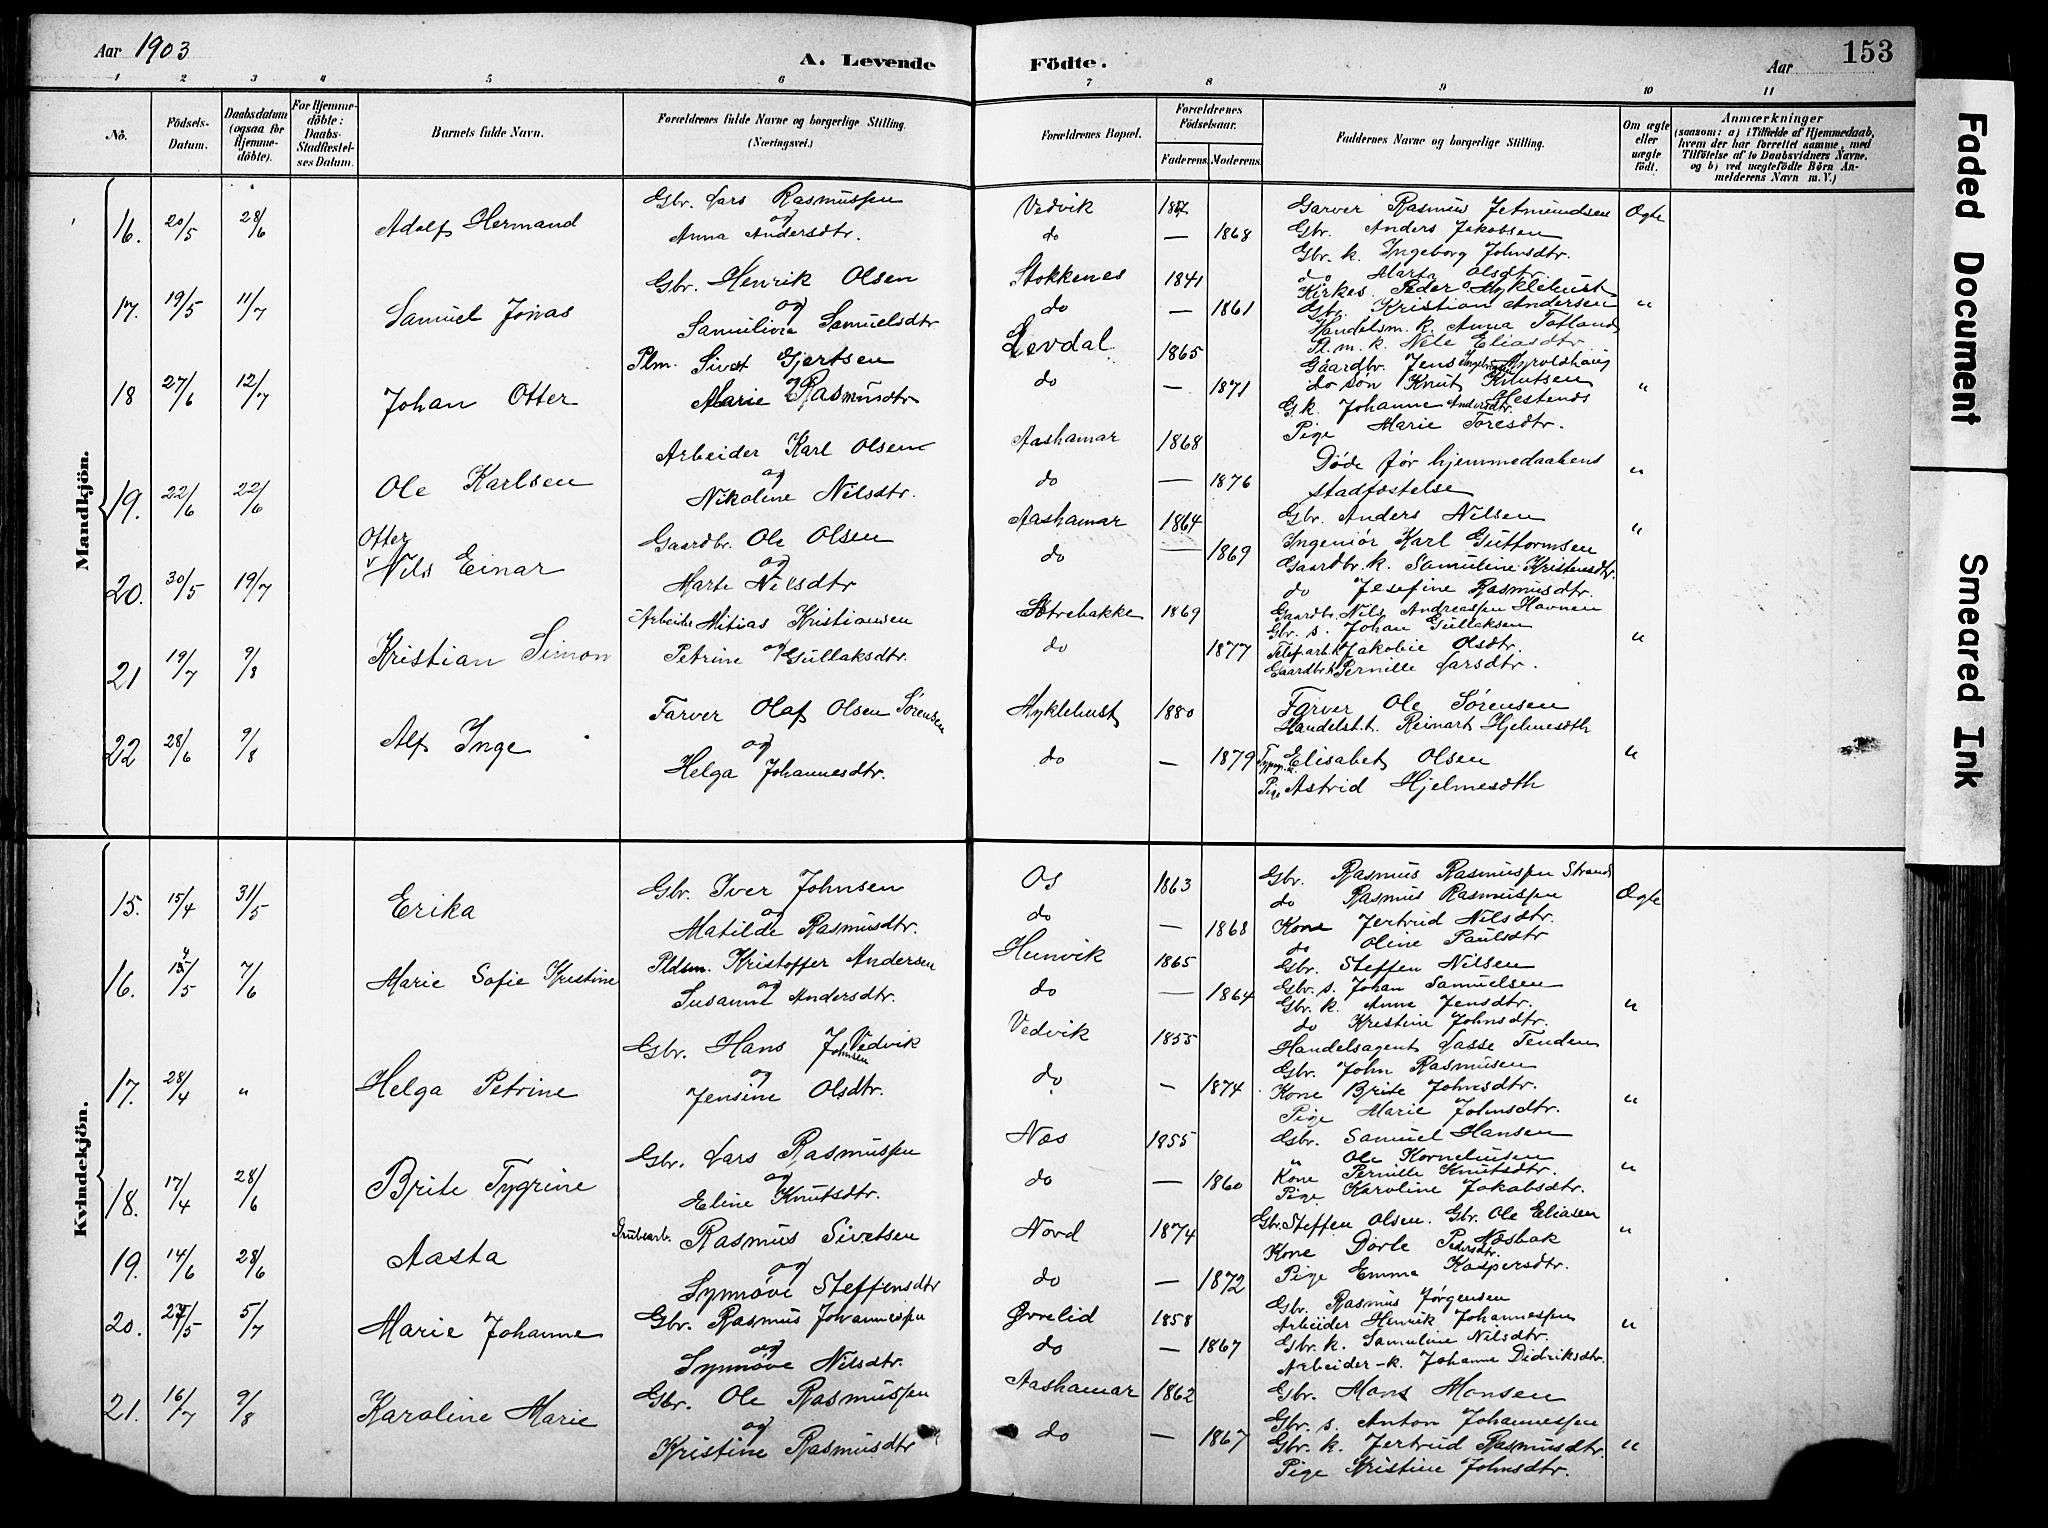 Aar 1903
A. Levende Födte.
Aar 153
1 2 3 4 5 6 7 8 9 10 11
No. Födsels-Datum. Daabsdatum (ogsaa for Hjemmedöbte). For Hjemmedöbte: Daabs-Stadfæstelses Datum. Barnets fulde Navn. Forældrenes fulde Navne og borgerlige Stilling. (Næringsvei.) Forældrenes Bopæl. Forældrenes Födselsaar. Faderens. Moderens. Faddernes Navne og borgerlige Stilling. Om ægte eller uægte födt. Anmærkninger (saasom: a) i Tilfælde af Hjemmedaab, hvem der har forrettet samme, med Tilföielse af to Daabsvidners Navne. og b) ved uægtefödte Börn Anmelderens Navn m. V.)
Mandkjön.
16. 20/5 28/6 Adolf Hermand
Gbr. Lars Rasmussen
og
Anna Andersdtr.
Vedvik
do — 1868
Garver Rasmus Jetmundsen Ægte
Gbr. Anders Jakobsen
Gbr. k. Ingeborg Johnsdtr.
do Marta Olsdtr.
17. 19/5 11/7 Samuel Jonas
Gbr. Henrik Olsen
og
Samuline Samuelsdtr
Stokkenes 1841
do — 1861
Kirkes. Peder Myklebust
Gbr. Kristian Andersen "
Handelsm. k. Anna Totland
Pl. m. k. Nele Eliasdtr
18 27/6 12/7 Johan Otter
Plm. Sivert Gjertsen
og
Marie Rasmusdtr
Levdal 1865
do — 1871
Gaardbr. Jens Myroldhaug
do søn Knut Knutsen "
G. k. Johanne Andersdtr. Hestenes
Pige Marie Toresdtr.
19. 22/6 22/6 Ole Karlsen
Arbeider Karl Olsen
og
Nikoline Nilsdtr.
Aashamar 1868
do — 1876
Døde før hjemmedaabens "
stadfæstelse
20. 30/5 19/7 Otter
v Nils Einar
Gaardbr. Ole Olsen
og
Marte Nilsdtr
Aashamar 1864
do — 1869
Gbr. Anders Nilsen "
Ingeniør Karl Guttormsen
Gaardbr. k. Samuline Kristensdtr.
do Josefine Rasmusdtr.
21 19/7 9/8 Kristian Simon
Arbeider Mitias Kristiansen
og
Petrine Gullaksdtr.
Sætrebakke 1869
do 1877
Gaardbr. Nils Andreassen Havnen
Gbr. s. Johan Gullaksen "
Telef. arb. k Jakobie Olsdtr.
Gaardbr. k Pernille Larsdtr.
22 28/6 9/8 Alf Inge
Farver Olaf Olsen Sørensen
og
Helga Johannesdtr.
Myklebust 1880
do — 1879
Farver Ole Sørensen
Handelsb.t. Reinart Hjelmesæth
Elisabet Olsen "
Pige Astrid Hjelmesæth
Kvindekjön.
15. 15/4 31/5 Erika
Gbr. Iver Johnsen
og
Matilde Rasmusdtr.
Os 1863
do — 1868
Gbr. Rasmus Rasmussen Strand
do Rasmus Rasmussen Ægte
Kone Jertrud Nilsdtr.
do Oline Paulsdtr
16. 15/5 7/6 Marie Sofie Kristine
Pldsm. Kristoffer Andersen
og
Susanne Andersdtr.
Hennvik 1865
do — 1864
Gbr. Steffen Nilsen
Gbr. s. Johan Samuelsen
Gbr. k. Anne Jensdtr. "
do Kristine Johnsdtr.
17. 28/4 " Helga Petrine
Gbr. Hans Johnsen Vedvik
og
Jensine Olsdtr.
Vedvik 1855
do — 1874
Handelsagent Lasse Tenden
Gbr. John Rasmusen
Kone Brite Johnsdtr. "
Pige Marie Johnsdtr.
18. 17/4 28/6 Brite Tygrine
Gbr. Lars Rasmussen
og
Eline Knutsdtr.
Næs 1855
do — 1860
Gbr. Samuel Hansen
" Ole Korneliusen
Kone Pernille Knutsdtr. "
Pige Karoline Jakobsdtr.
19. 14/6 28/6 Aasta
Grubearb. Rasmus Sivertsen
og
Synnøve Steffensdtr
Nord 1874
do — 1872
Gbr. Steffen Olsen. Gbr. Ole Eliasen
Kone Dorte Pedersdtr. Næsbak "
Pige Emma Kaspersdtr.
20. 27/5 5/7 Marie Johanne
Gbr. Rasmus Johannessen
og
Synnøve Nilsdtr.
Øvrelid 1858
do — 1867
Gbr. Rasmus Jørgensen
Arbeider Henrik Johannessen "
Gbr. k. Samuline Nilsdtr.
Arbeider-k. Johanne Didriksdtr.
21. 16/7 9/8 Karoline Marie
Gbr. Ole Rasmussen
og
Kristine Rasmusdtr
Aashamar 1862
do — 1867
Gbr. Mons Monsen
Gbr. s. Anton Johannessen
Gbr. k. Jertrud Rasmusdtr. "
Pige Kristine Johnsdtr.
Faded Document
Smeared Ink